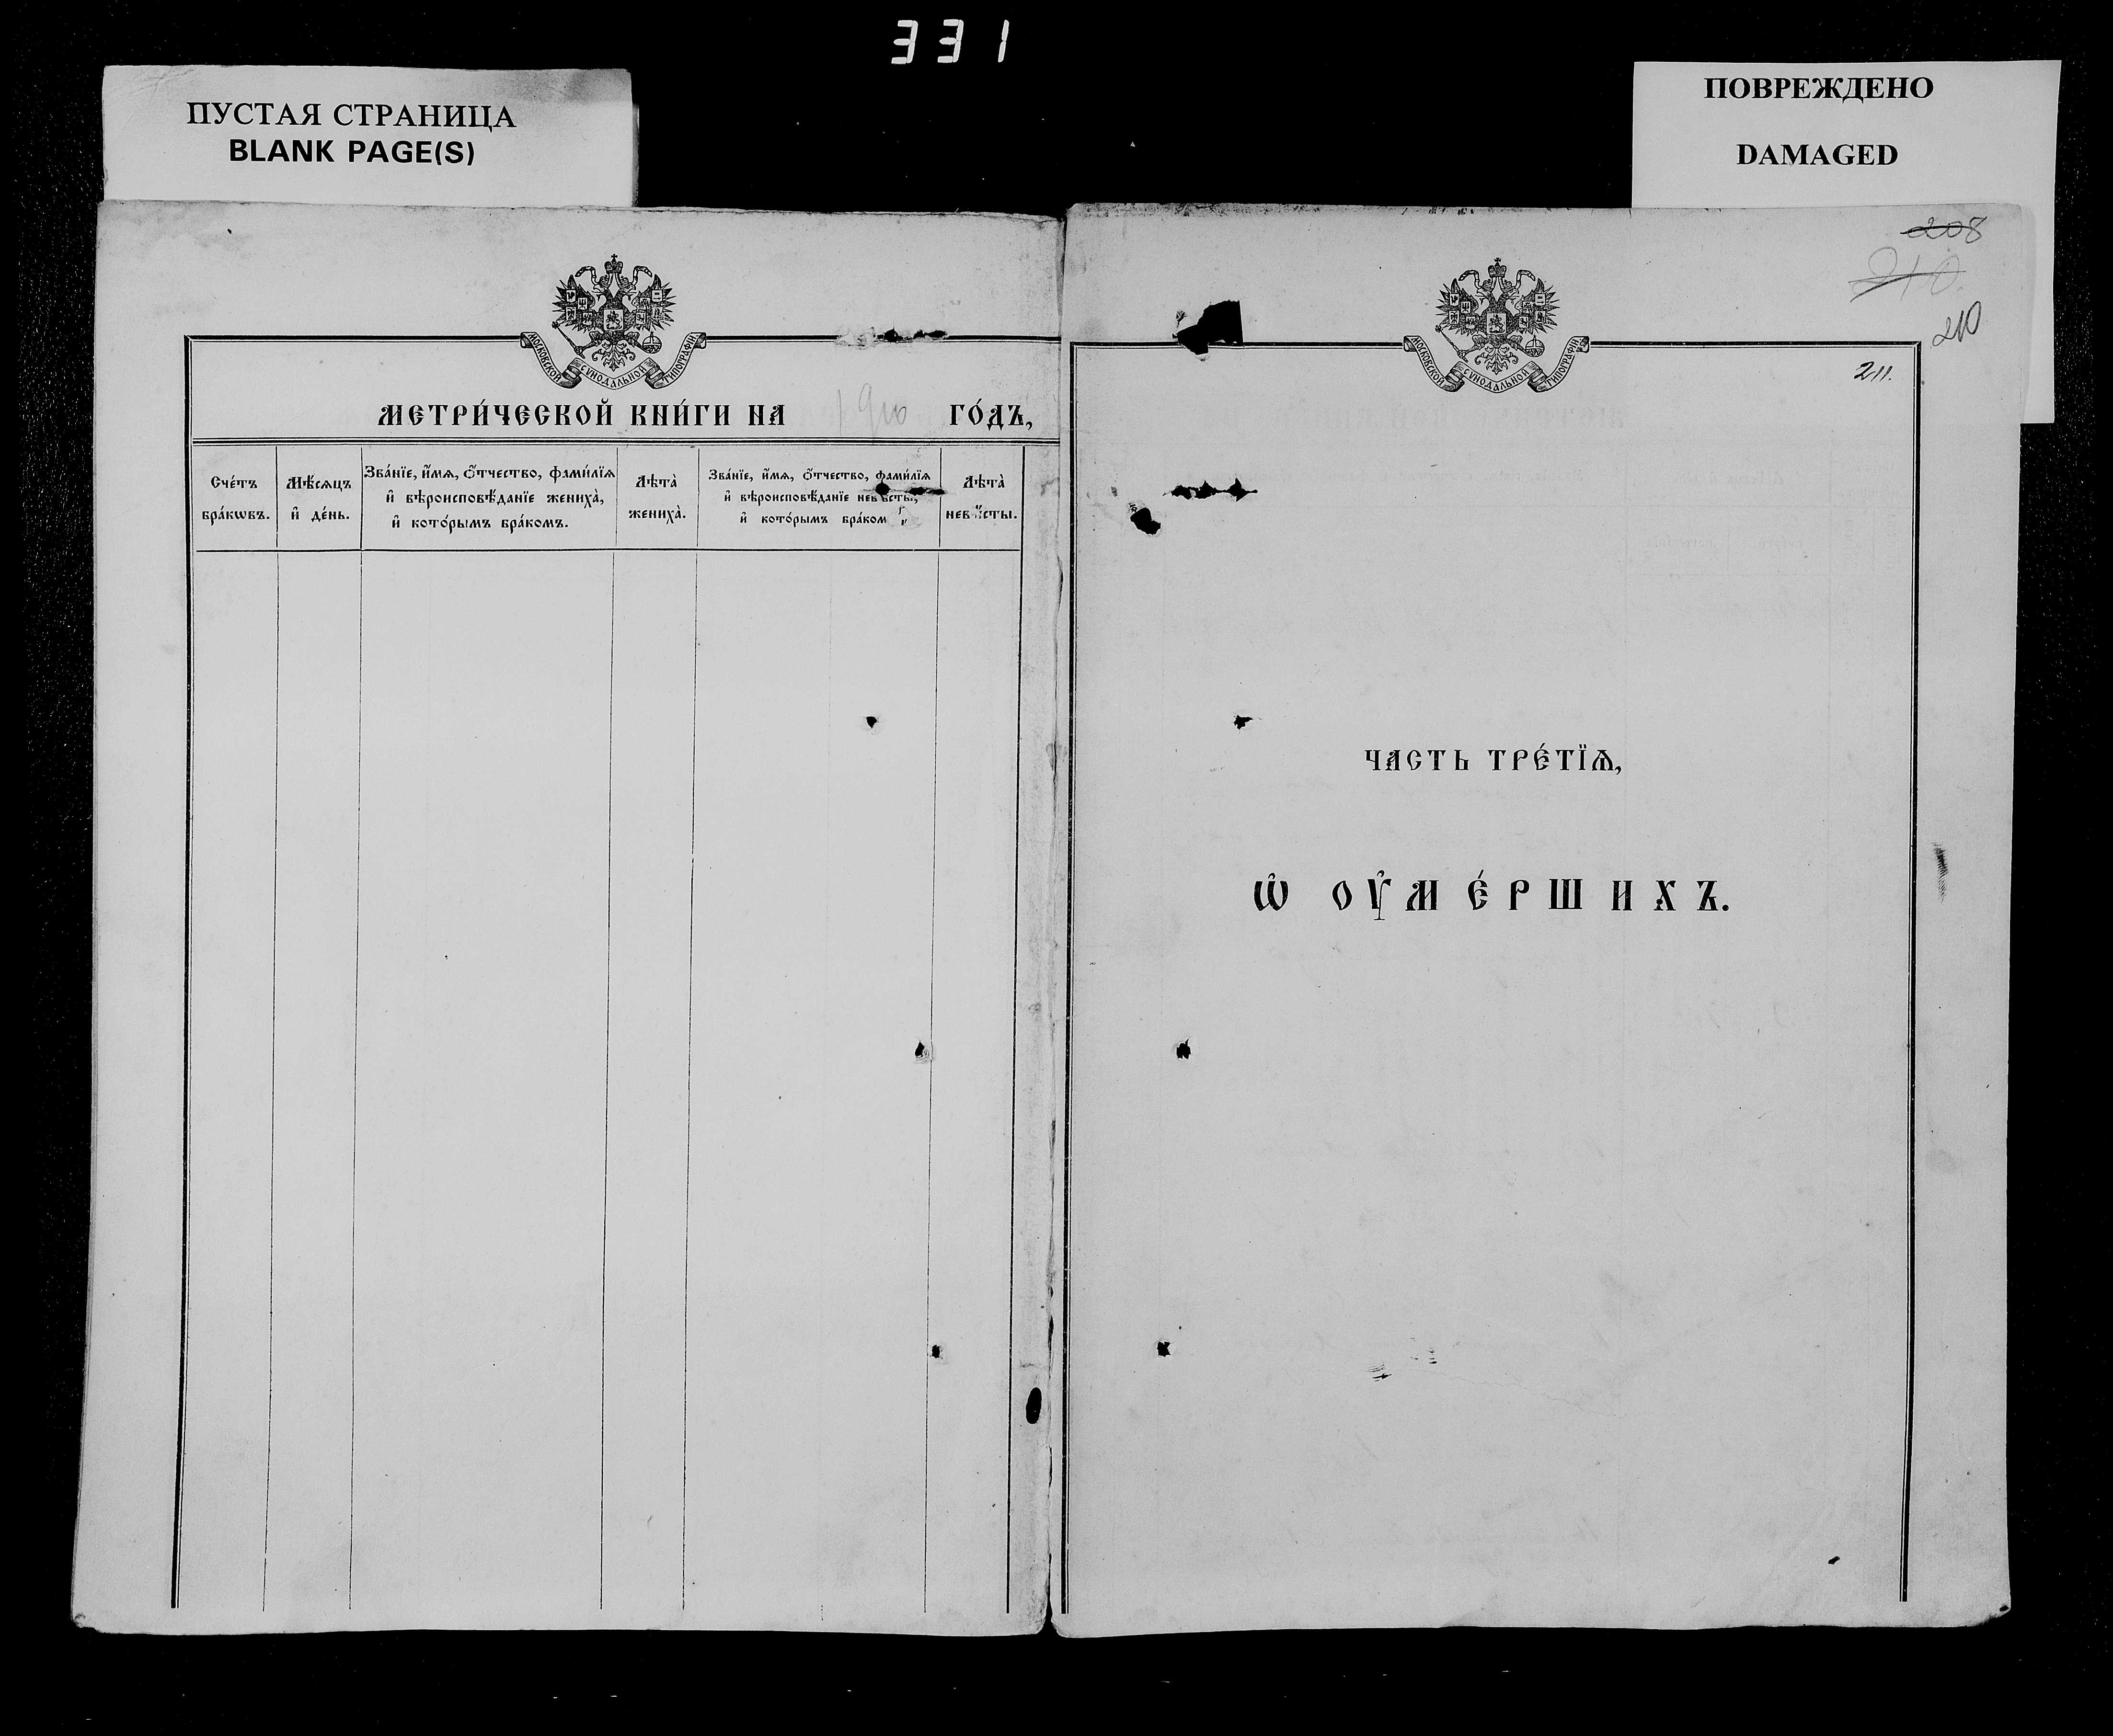 331
ПУСТАЯ СТРАНИЦА
BLANK PAGE(S)
ПОВРЕЖДЕНО
DAMAGED
208
210.
210
211.
МОСКОВСКОЙ СѴНОДАЛЬНОЙ ТИПОГРАФІИ
МЕТРИ́ЧЕСКОЙ КНИ́ГИ НА 1910 ГО́ДЪ,
Сче́тъ бра́кѡвъ.
Мѣ́сѧцъ и҆ де́нь.
Зва́нїе, и҆́мѧ, ѻ҆́тчество, фами́лїѧ
и҆ вѣроисповѣ́данїе жениха̀,
и҆ кото́рымъ бра́комъ.
Лѣта̀ жениха̀.
Зва́нїе, и҆́мѧ, ѻ҆́тчество, фами́лїѧ
и҆ вѣроисповѣ́данїе невѣ́сты,
и҆ кото́рымъ бра́ком
Лѣта̀ невѣ́сты.
МОСКОВСКОЙ СѴНОДАЛЬНОЙ ТИПОГРАФІИ
ЧАСТЬ ТРЕ́ТЇѦ,
Ѡ҆ ОУ҆МЕ́РШИХЪ.